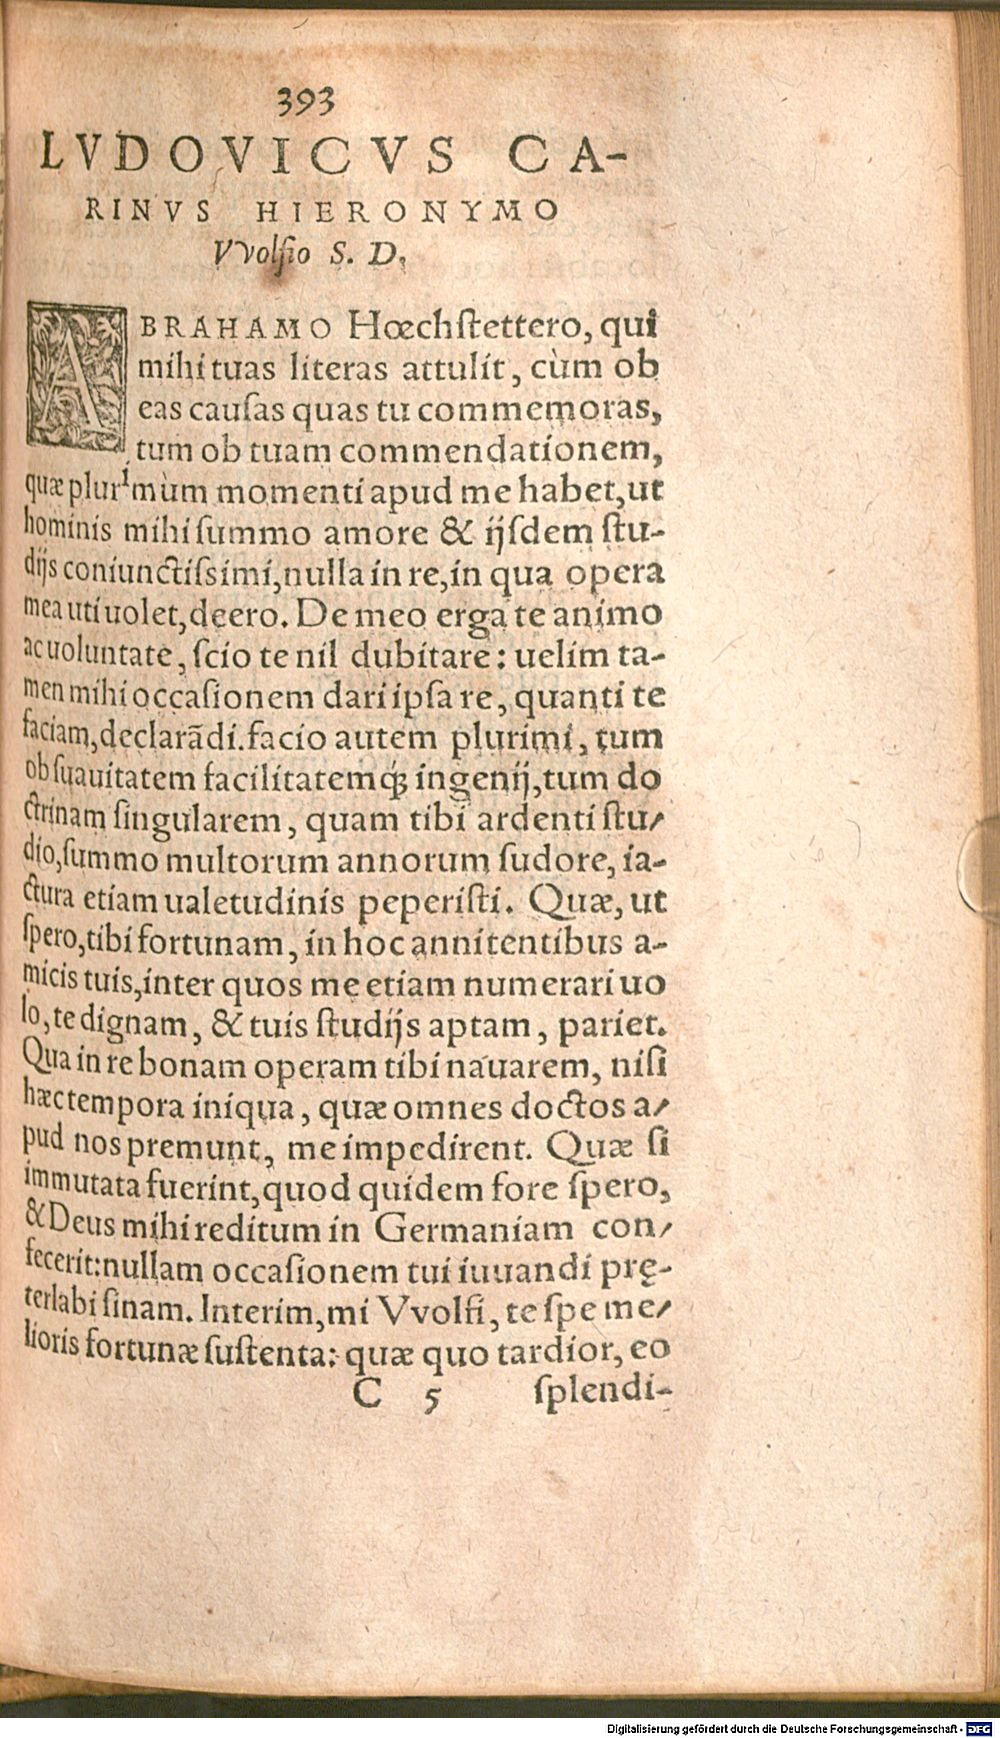 393
LVDOVICVS CA-
RINVS HIERONYMO
VVolfio S. D.
ABRAHAMO Hœchſtettero, qui
mihi tuas literas attulit, cùm ob
eas cauſas quas tu commemoras,
tum ob tuam commendationem,
quæ plurimùm momenti apud me habet, ut
hominis mihi ſummo amore & ijſdem ſtu-
dijs coniunctiſsimi, nulla in re, in qua opera
mea uti uolet, deero. De meo erga te animo
ac uoluntate, ſcio te nil dubitare: uelim ta-
men mihi occaſionem dari ipſa re, quanti te
faciam, declarãdi. facio autem plurimi, tum
ob ſuauitatem facilitatemq́; ingenij, tum do
ctrinam ſingularem, quam tibi ardenti ſtu/
dio, ſummo multorum annorum ſudore, ia-
ctura etiam ualetudinis peperiſti. Quæ, ut
ſpero, tibi fortunam, in hoc annitentibus a-
micis tuis, inter quos me etiam numerari uo
lo, te dignam, & tuis ſtudijs aptam, pariet.
Qua in re bonam operam tibi nauarem, niſi
hæc tempora iniqua, quæ omnes doctos a/
pud nos premunt, me impedirent. Quæ ſi
immutata fuerint, quod quidem fore ſpero,
& Deus mihi reditum in Germaniam con/
fecerit: nullam occaſionem tui iuuandi prę-
terlabi ſinam. Interim, mi VVolfi, te ſpe me/
lioris fortunæ ſuſtenta: quæ quo tardior, eo
C 5 ſplendi-
Digitalisierung gefördert durch die Deutsche Forschungsgemeinschaft - DFG